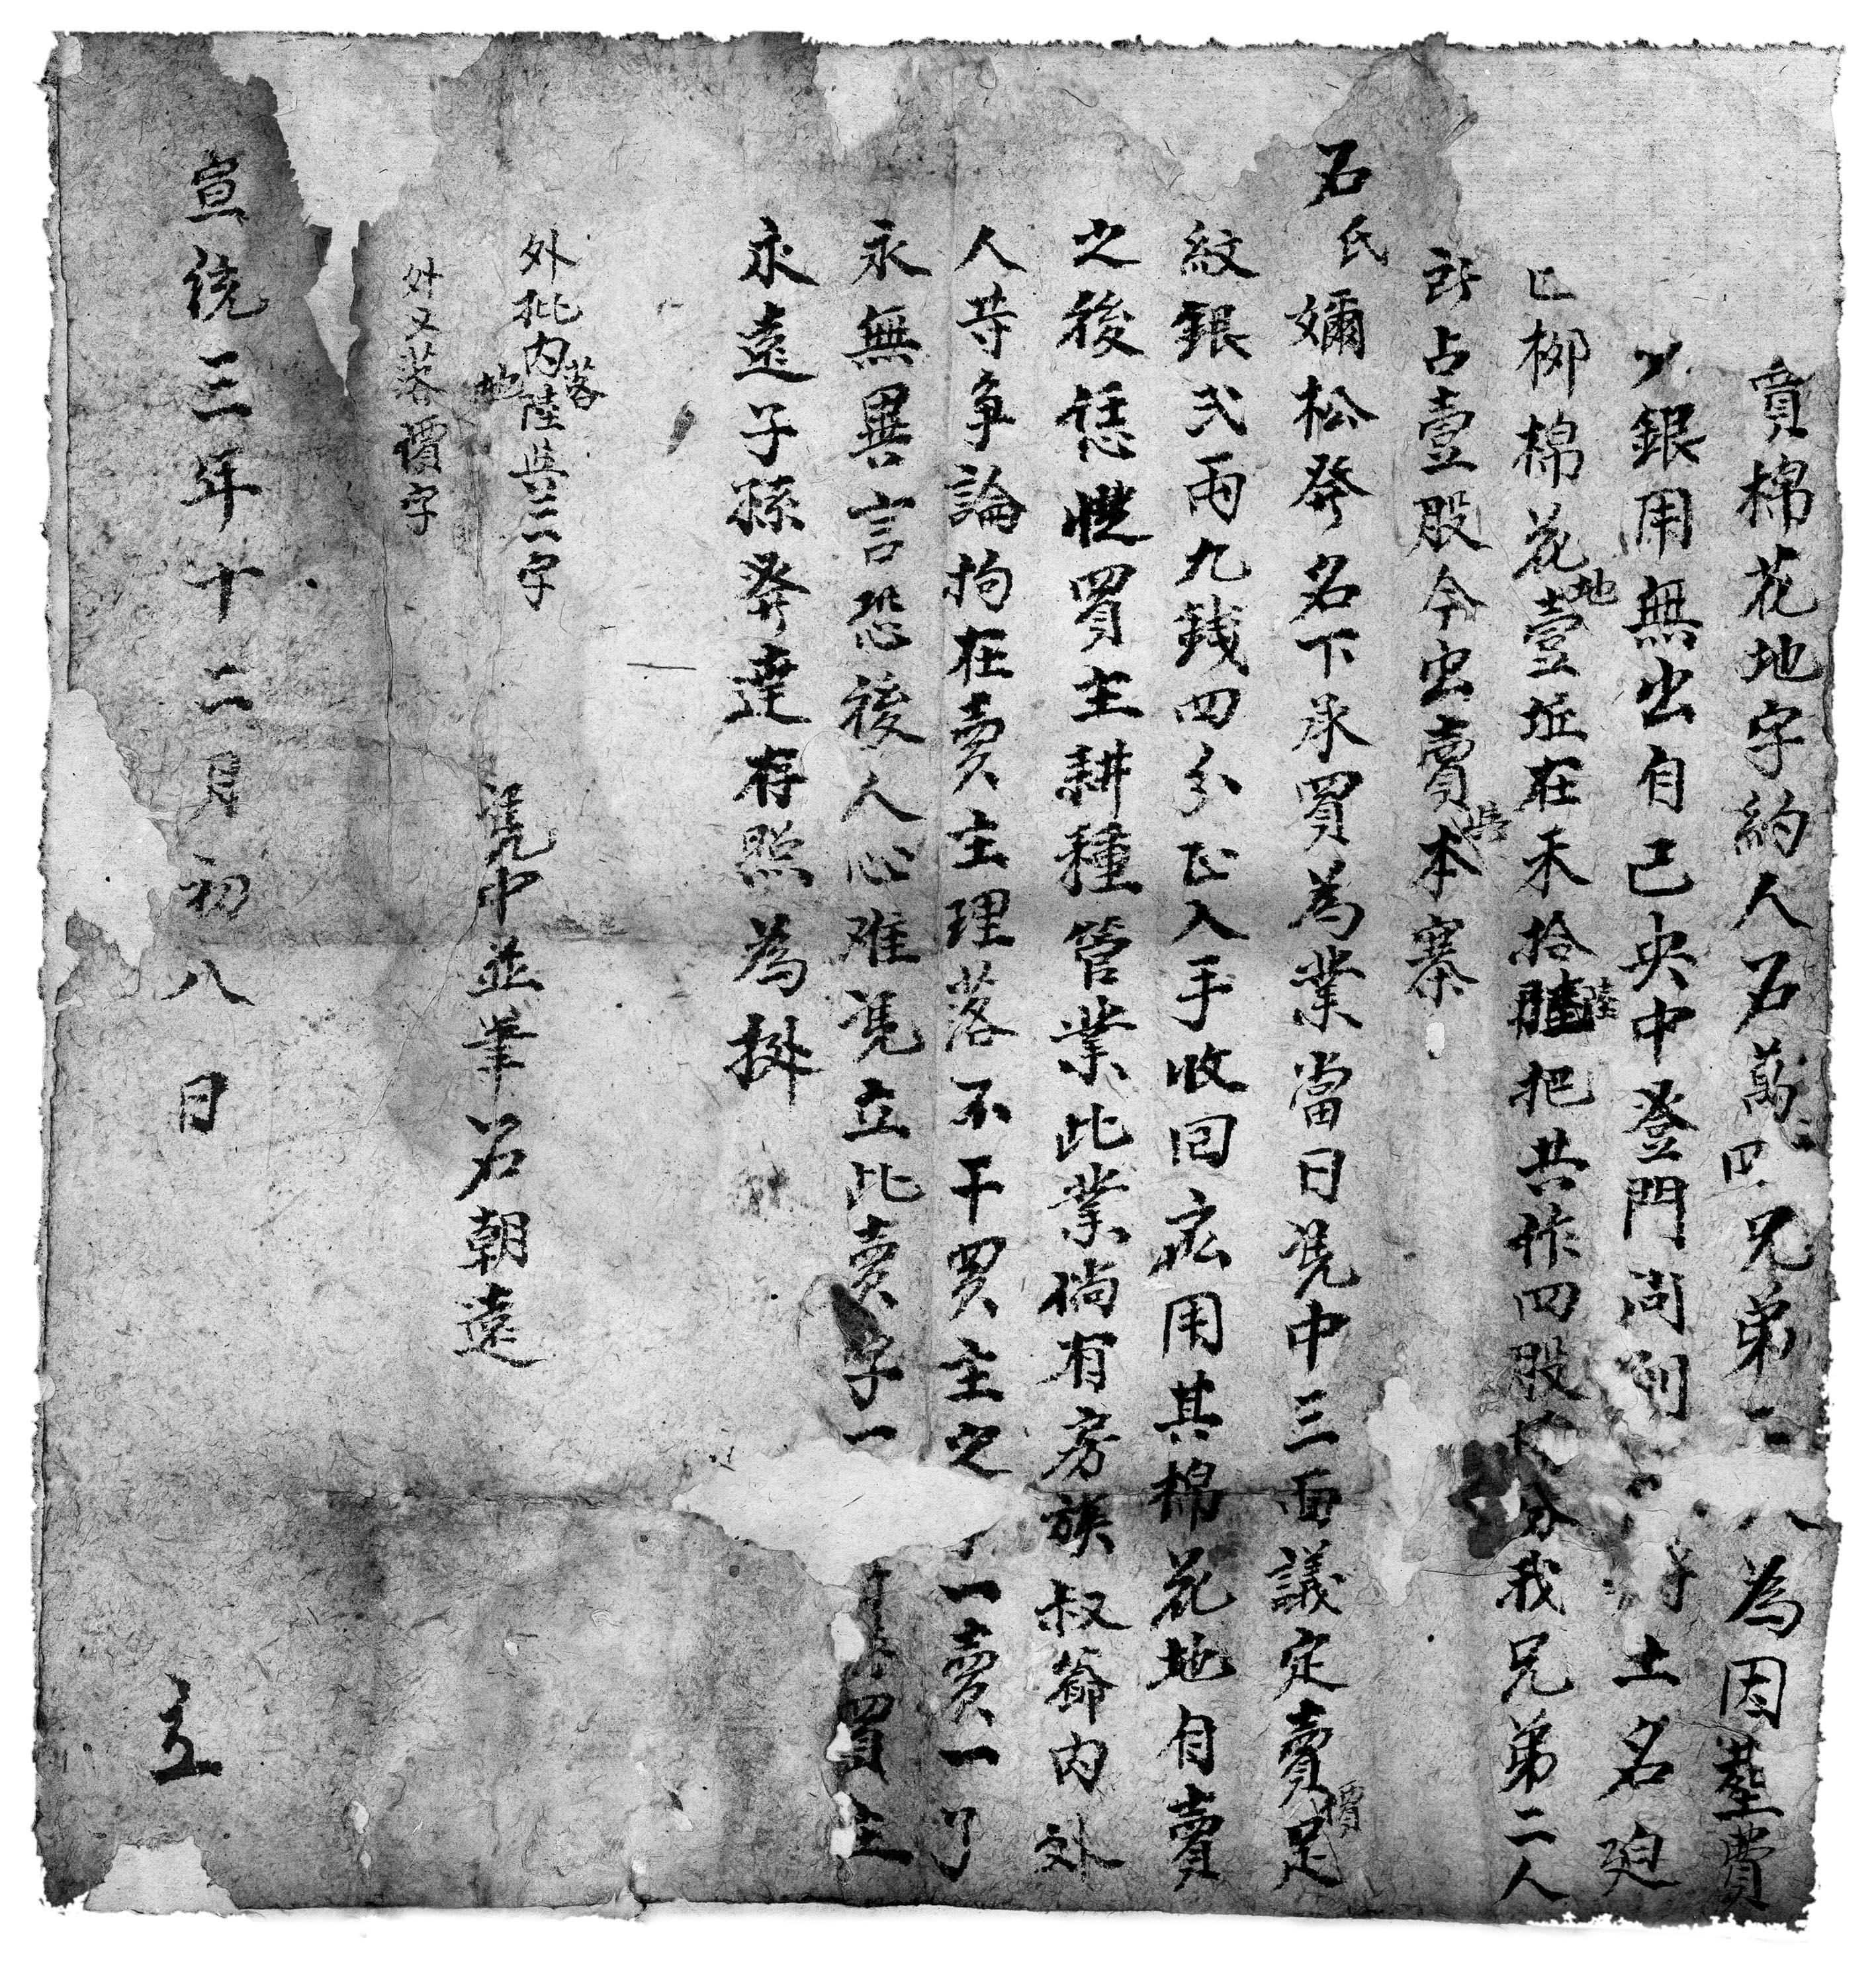 賣棉花地字約人石萬三四兄弟二八為因墓費
銀用無出自己央中登門問到 土名廻
柳棉花地壹坵在禾拾陸把共作四股分我兄弟二人
占壹股今出賣與本寨
石氏嬭松發名下承買為業當日凴中三面議定賣價足
紋銀弍両九錢四分正入手收回應用其棉花地自賣
之後恁憑買主耕種管業此業倘有房族叔爺內外
人等爭論拘在賣主理落不干買主之一賣一了
永無異言恐後人心难凴立此賣字一買主
永遠子孫發達存照為據
外批內落陸與地三字
外又落價字
凴中並筆石朝遠
宣統三年十二月初八日 立